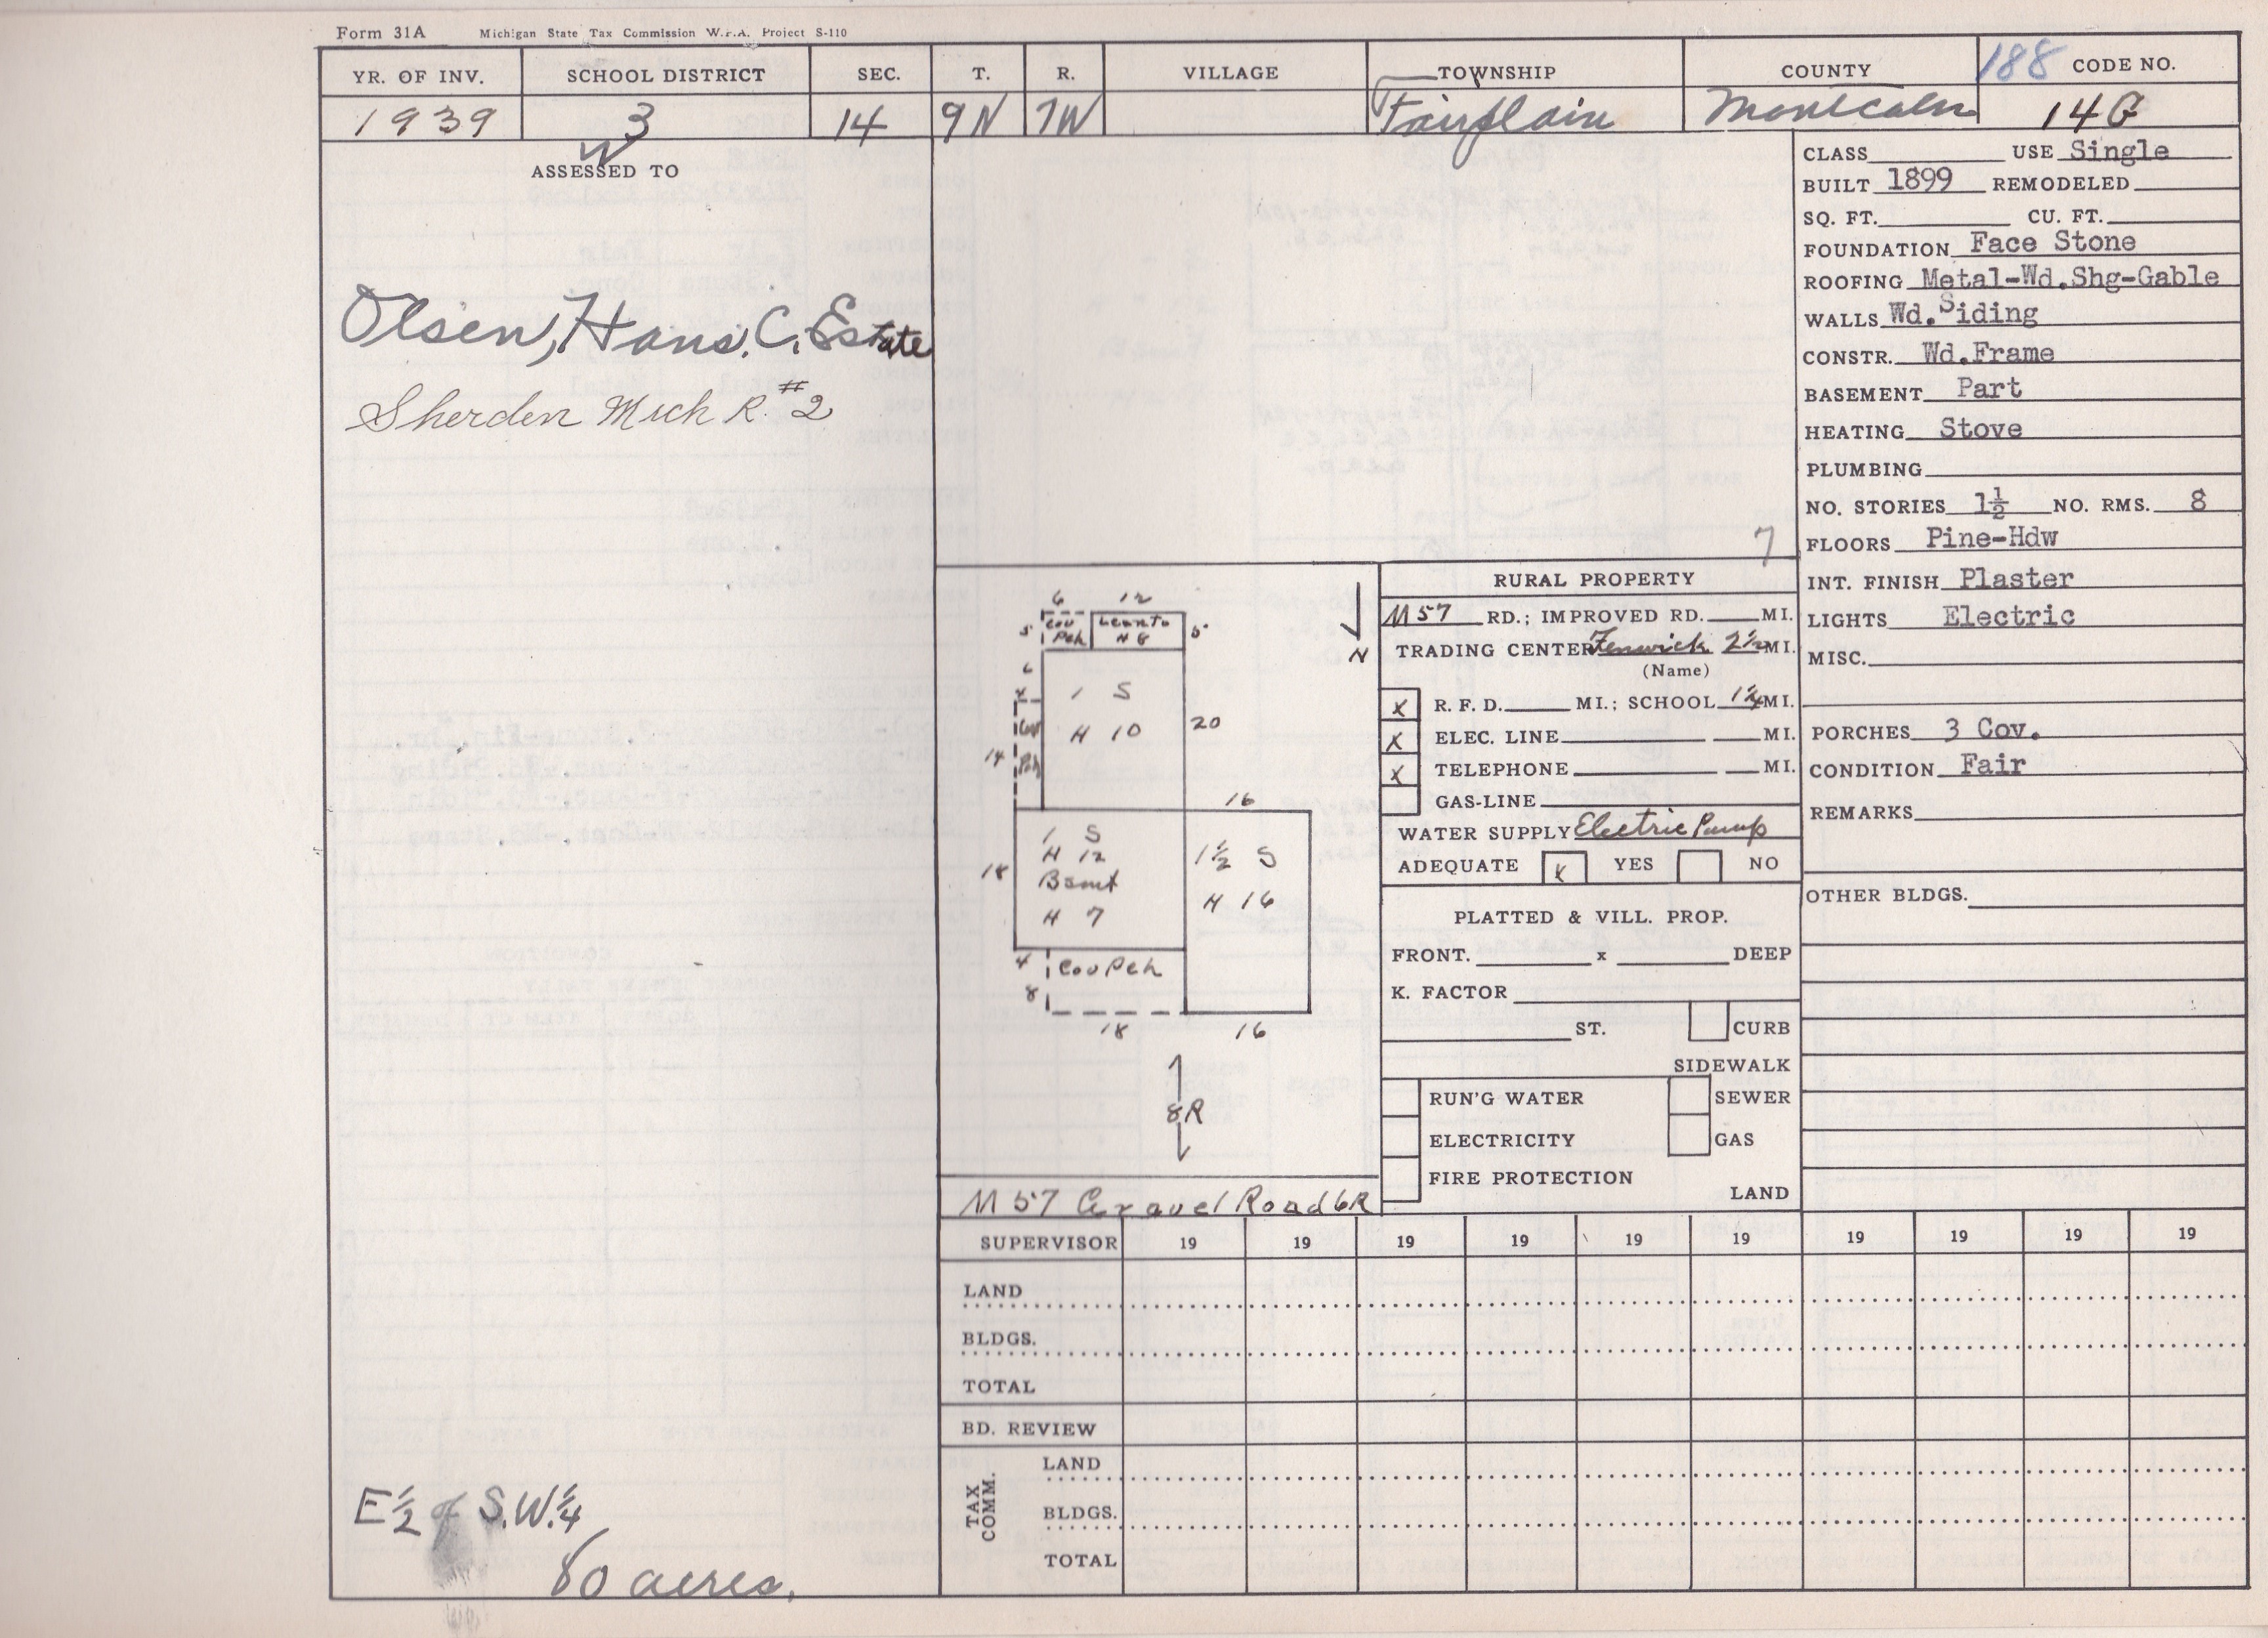 Form 31A Michigan State Tax Commission W.P.A. Project S-110
YR. OF INV. SCHOOL DISTRICT SEC. T. R. VILLAGE TOWNSHIP COUNTY 188 CODE NO.
1939 3 14 9N 7W Fairplain Montcalm 14G
ASSESSED TO
Olsen, Hans. C. Estate
Sherden Mich R. #2
E 1/2 of S.W. 1/4
80 acres.
7
CLASS USE Single
BUILT 1899 REMODELED
SQ. FT. CU. FT.
FOUNDATION Face Stone
ROOFING Metal-Wd.Shg-Gable
WALLS Wd.Siding
CONSTR. Wd.Frame
BASEMENT Part
HEATING Stove
PLUMBING
NO. STORIES 1½ NO. RMS. 8
FLOORS Pine-Hdw
INT. FINISH Plaster
LIGHTS Electric
MISC.
PORCHES 3 Cov.
CONDITION Fair
REMARKS
OTHER BLDGS.
6 12
5 Cov Pch Leanto NG 5
N
6
4
1 S
H 10
20
14 Cov Pch
16
1 S
H 12
Bsmt
H 7
18
1½ S
H 16
4 Cov Pch
8
18 16
8R
M 57 Gravel Road 6R
RURAL PROPERTY
M 57 RD.; IMPROVED RD. MI.
TRADING CENTER Fenwick 2½ MI.
(Name)
x R. F. D. MI.; SCHOOL 1¼ MI.
x ELEC. LINE MI.
x TELEPHONE MI.
GAS-LINE
WATER SUPPLY Electric Pump
ADEQUATE x YES NO
PLATTED & VILL. PROP.
FRONT. x DEEP
K. FACTOR
ST. CURB
SIDEWALK
RUN'G WATER SEWER
ELECTRICITY GAS
FIRE PROTECTION
LAND
SUPERVISOR 19 19 19 19 19 19 19 19 19 19
LAND
BLDGS.
TOTAL
BD. REVIEW
TAX COMM.
LAND
BLDGS.
TOTAL